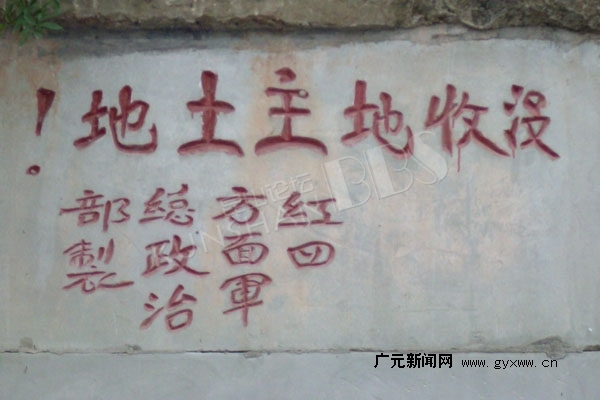 没收地主土地!
红四
方面軍
總政治
部製
论坛
BBS
广元新闻网 www.gyxww.cn